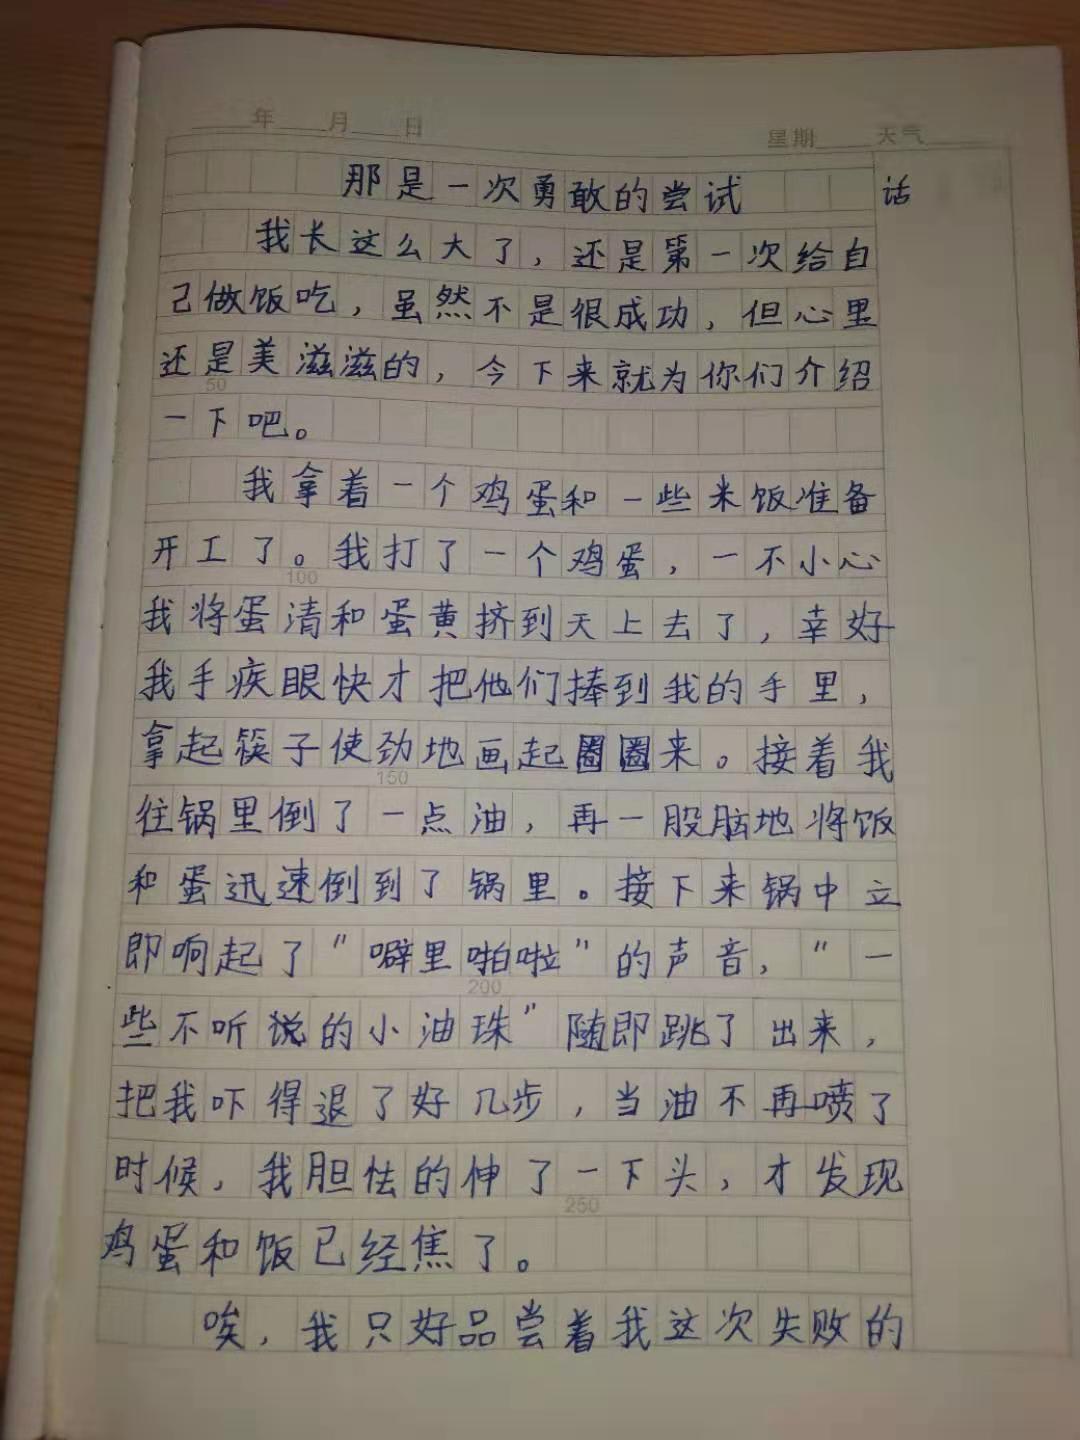 年 月 日 星期 天气
那是一次勇敢的尝试 话
我长这么大了，还是第一次给自
己做饭吃，虽然不是很成功，但心里
还是美滋滋的，今下来就为你们介绍
50
一下吧。
我拿着一个鸡蛋和一些米饭准备
开工了。我打了一个鸡蛋，一不小心
100
我将蛋清和蛋黄挤到天上去了，幸好
我手疾眼快才把他们捧到我的手里，
拿起筷子使劲地画起圈圈来。接着我
150
往锅里倒了一点油，再一股脑地将饭
和蛋迅速倒到了锅里。接下来锅中立
即响起了"噼里啪啦"的声音，"一
200
些不听说的小油珠"随即跳了出来，
把我吓得退了好几步，当油不再喷了
时候，我胆怯的伸了一下头，才发现
250
鸡蛋和饭已经焦了。
唉，我只好品尝着我这次失败的